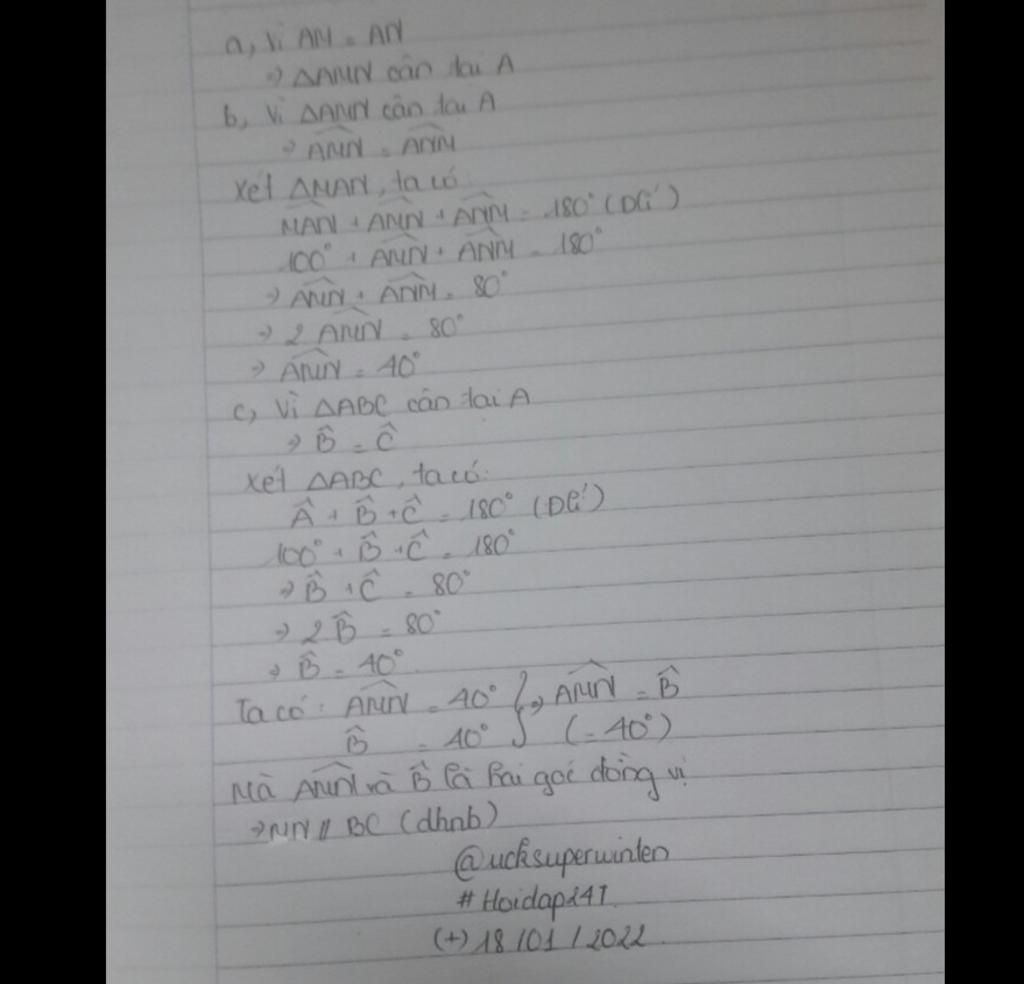 a, Vì AM = AN
⇒ ΔAMN cân tại A
b, Vì ΔAMN cân tại A
⇒ \widehat{AMN} = \widehat{ANM}
Xét ΔMAN, ta có
\widehat{MAN} + \widehat{AMN} + \widehat{ANM} = 180° (ĐLí)
100° + \widehat{AMN} + \widehat{ANM} = 180°
⇒ \widehat{AMN} + \widehat{ANM} = 80°
⇒ 2 \widehat{AMN} = 80°
⇒ \widehat{AMN} = 40°
c, Vì ΔABC cân tại A
⇒ B̂ = Ĉ
Xét ΔABC, ta có:
Â + B̂ + Ĉ = 180° (ĐLí)
100° + B̂ + Ĉ = 180°
⇒ B̂ + Ĉ = 80°
⇒ 2B̂ = 80°
⇒ B̂ = 40°
Ta có: \widehat{AMN} = 40° } ⇒ \widehat{AMN} = B̂
B̂ = 40° (= 40°)
Mà \widehat{AMN} và B̂ là hai góc đồng vị
⇒ MN // BC (dhnb)
@ucksuperwinlen
#Hoidap247
(+) 18/01/2022